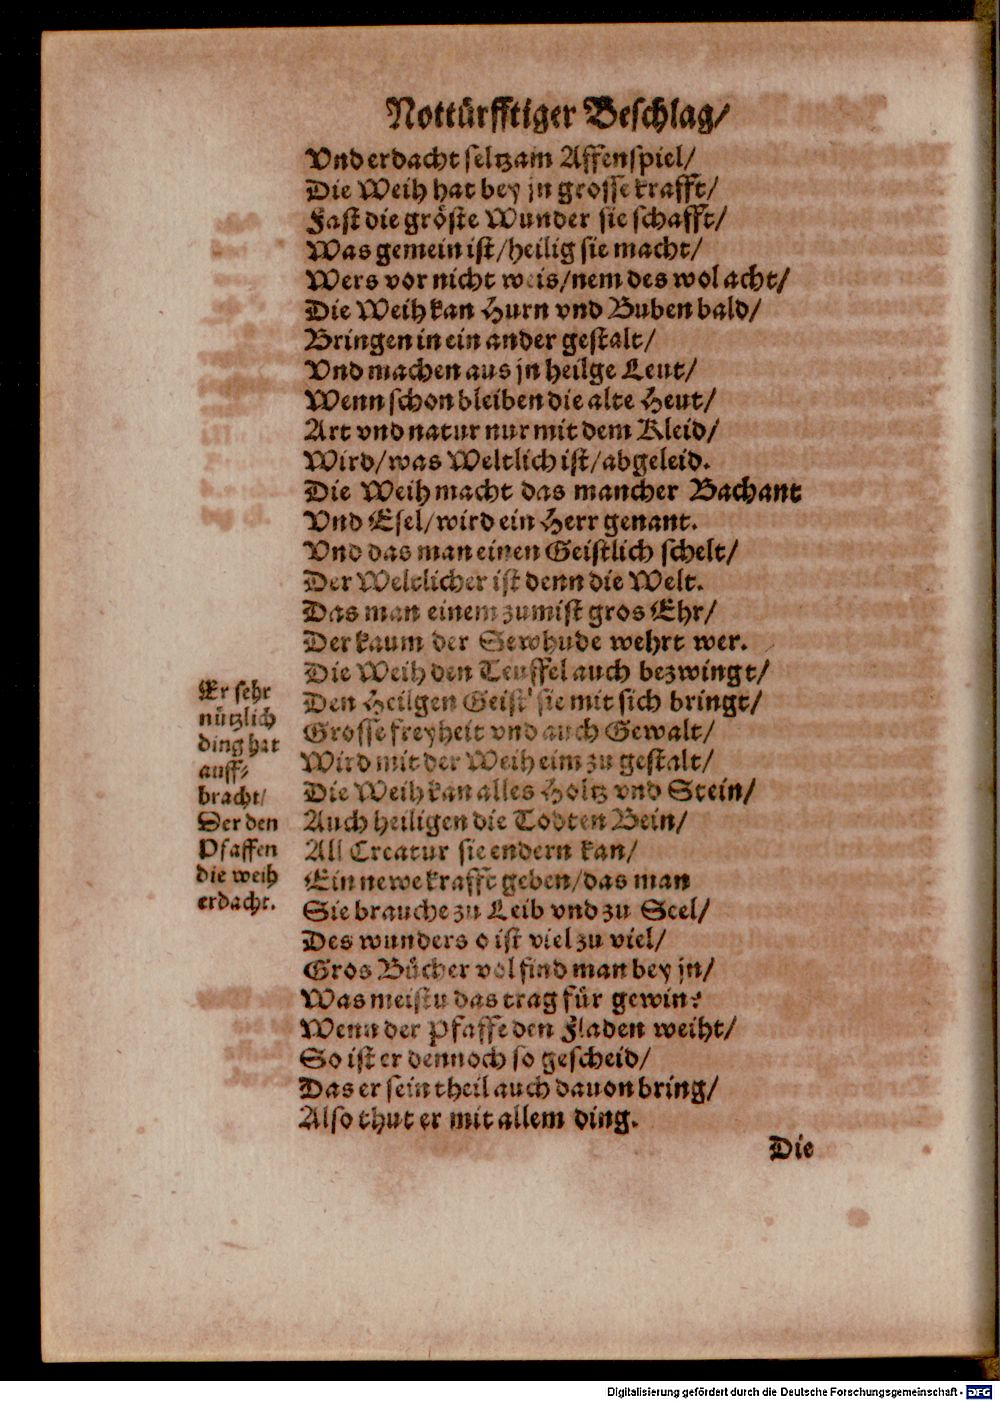 Nottürfftiger Beschlag/
Vnd erdacht seltzam Affenspiel/
Die Weih hat bey jn grosse krafft/
Fast die gröste Wunder sie schafft/
Was gemein ist/heilig sie macht/
Wers vor nicht weis/nem des wol acht/
Die Weih kan Hurn vnd Buben bald/
Bringen in ein ander gestalt/
Vnd machen aus jn heilge Leut/
Wenn schon bleiben die alte Heut/
Art vnd natur nur mit dem Kleid/
Wird/was Weltlich ist/abgeleid.
Die Weih macht das mancher Bachant
Vnd Esel/wird ein Herr genant.
Vnd das man einen Geistlich schelt/
Der Weltlicher ist denn die Welt.
Das man einem zumist gros Ehr/
Der kaum der Sewhude wehrt wer.
Die Weih den Teuffel auch bezwingt/
Den Heilgen Geist sie mit sich bringt/
Grosse freyheit vnd auch Gewalt/
Wird mit der Weih eim zu gestalt/
Die Weih kan alles Holtz vnd Stein/
Auch heiligen die Todten Bein/
All Creatur sie endern kan/
Ein newe krafft geben/das man
Sie brauche zu Leib vnd zu Seel/
Des wunders o ist viel zu viel/
Gros Bücher vol find man bey jn/
Was meistu das trag für gewin?
Wenn der Pfaffe den Fladen weiht/
So ist er dennoch so gescheid/
Das er sein theil auch dauon bring/
Also thut er mit allem ding.
Er sehr
nützlich
ding hat
auff-
bracht/
Der den
Pfaffen
die weih
erdacht.
Die
Digitalisierung gefördert durch die Deutsche Forschungsgemeinschaft - DFG